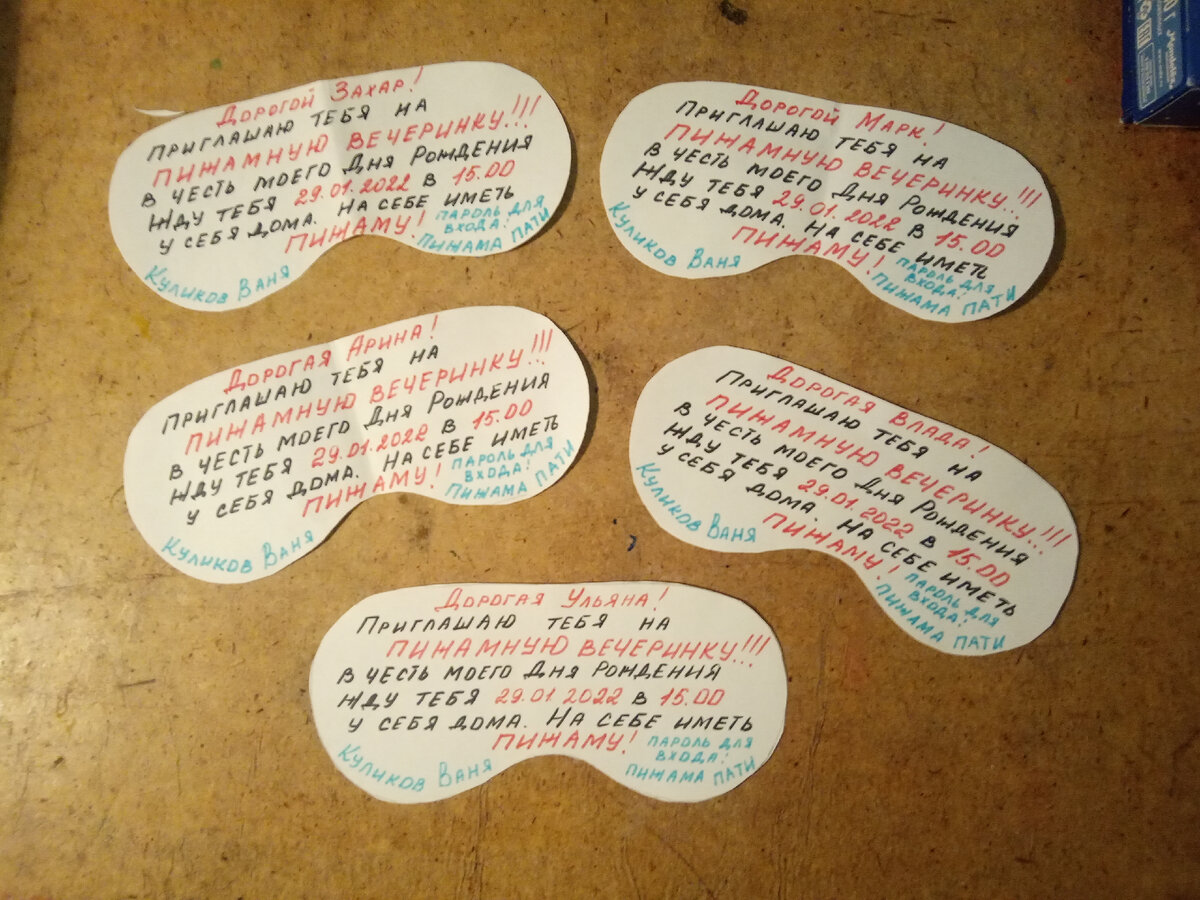 Дорогой Захар!
Приглашаю тебя на
пижамную вечеринку!!!
в честь моего Дня Рождения
жду тебя 29.01.2022 в 15.00
у себя дома. На себе иметь
пижаму!
пароль для
входа:
пижама пати
Куликов Ваня
Дорогой Марк!
Приглашаю тебя на
пижамную вечеринку!!!
в честь моего Дня Рождения
жду тебя 29.01.2022 в 15.00
у себя дома. На себе иметь
пижаму!
пароль для
входа:
пижама пати
Куликов Ваня
Дорогая Арина!
Приглашаю тебя на
пижамную вечеринку!!!
в честь моего Дня Рождения
жду тебя 29.01.2022 в 15.00
у себя дома. На себе иметь
пижаму!
пароль для
входа:
пижама пати
Куликов Ваня
Дорогая Влада!
Приглашаю тебя на
пижамную вечеринку!!!
в честь моего Дня Рождения
жду тебя 29.01.2022 в 15.00
у себя дома. На себе иметь
пижаму!
пароль для
входа:
пижама пати
Куликов Ваня
Дорогая Ульяна!
Приглашаю тебя на
пижамную вечеринку!!!
в честь моего Дня Рождения
жду тебя 29.01.2022 в 15.00
у себя дома. На себе иметь
пижаму!
пароль для
входа:
пижама пати
Куликов Ваня